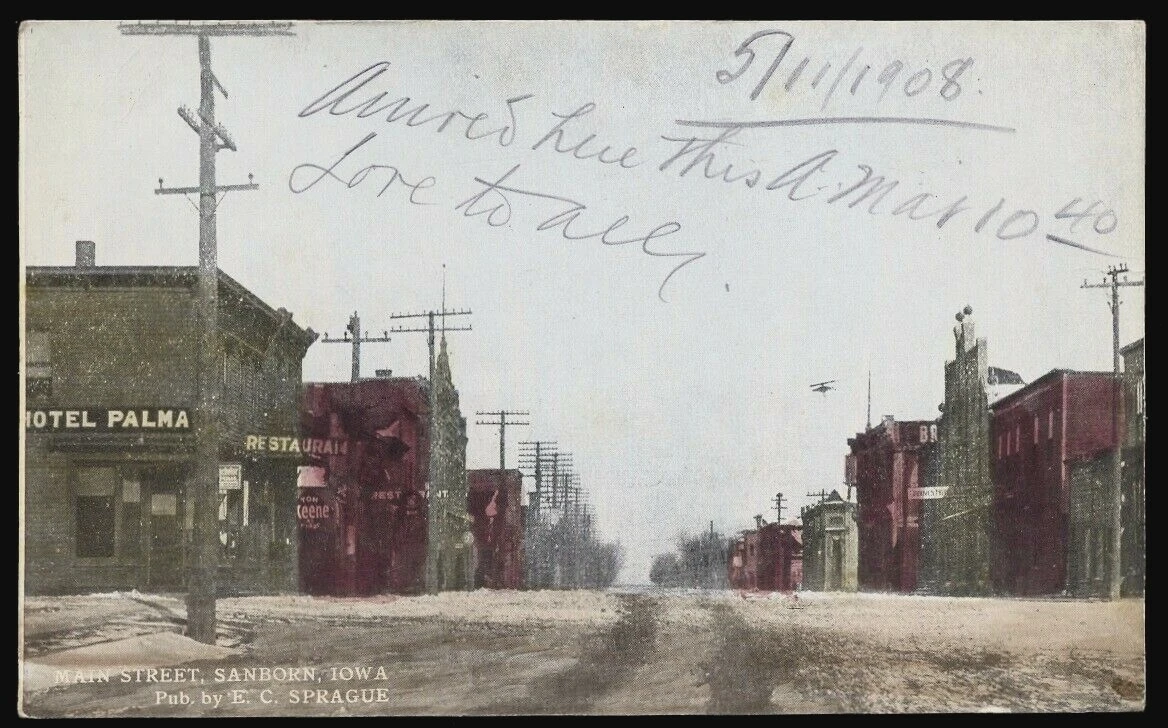 5/11/1908.
Arrived here this A. Mat 10 40
Love to all,
HOTEL PALMA
RESTAURANT
REST
Keene
MAIN STREET, SANBORN, IOWA
Pub. by E. C. SPRAGUE